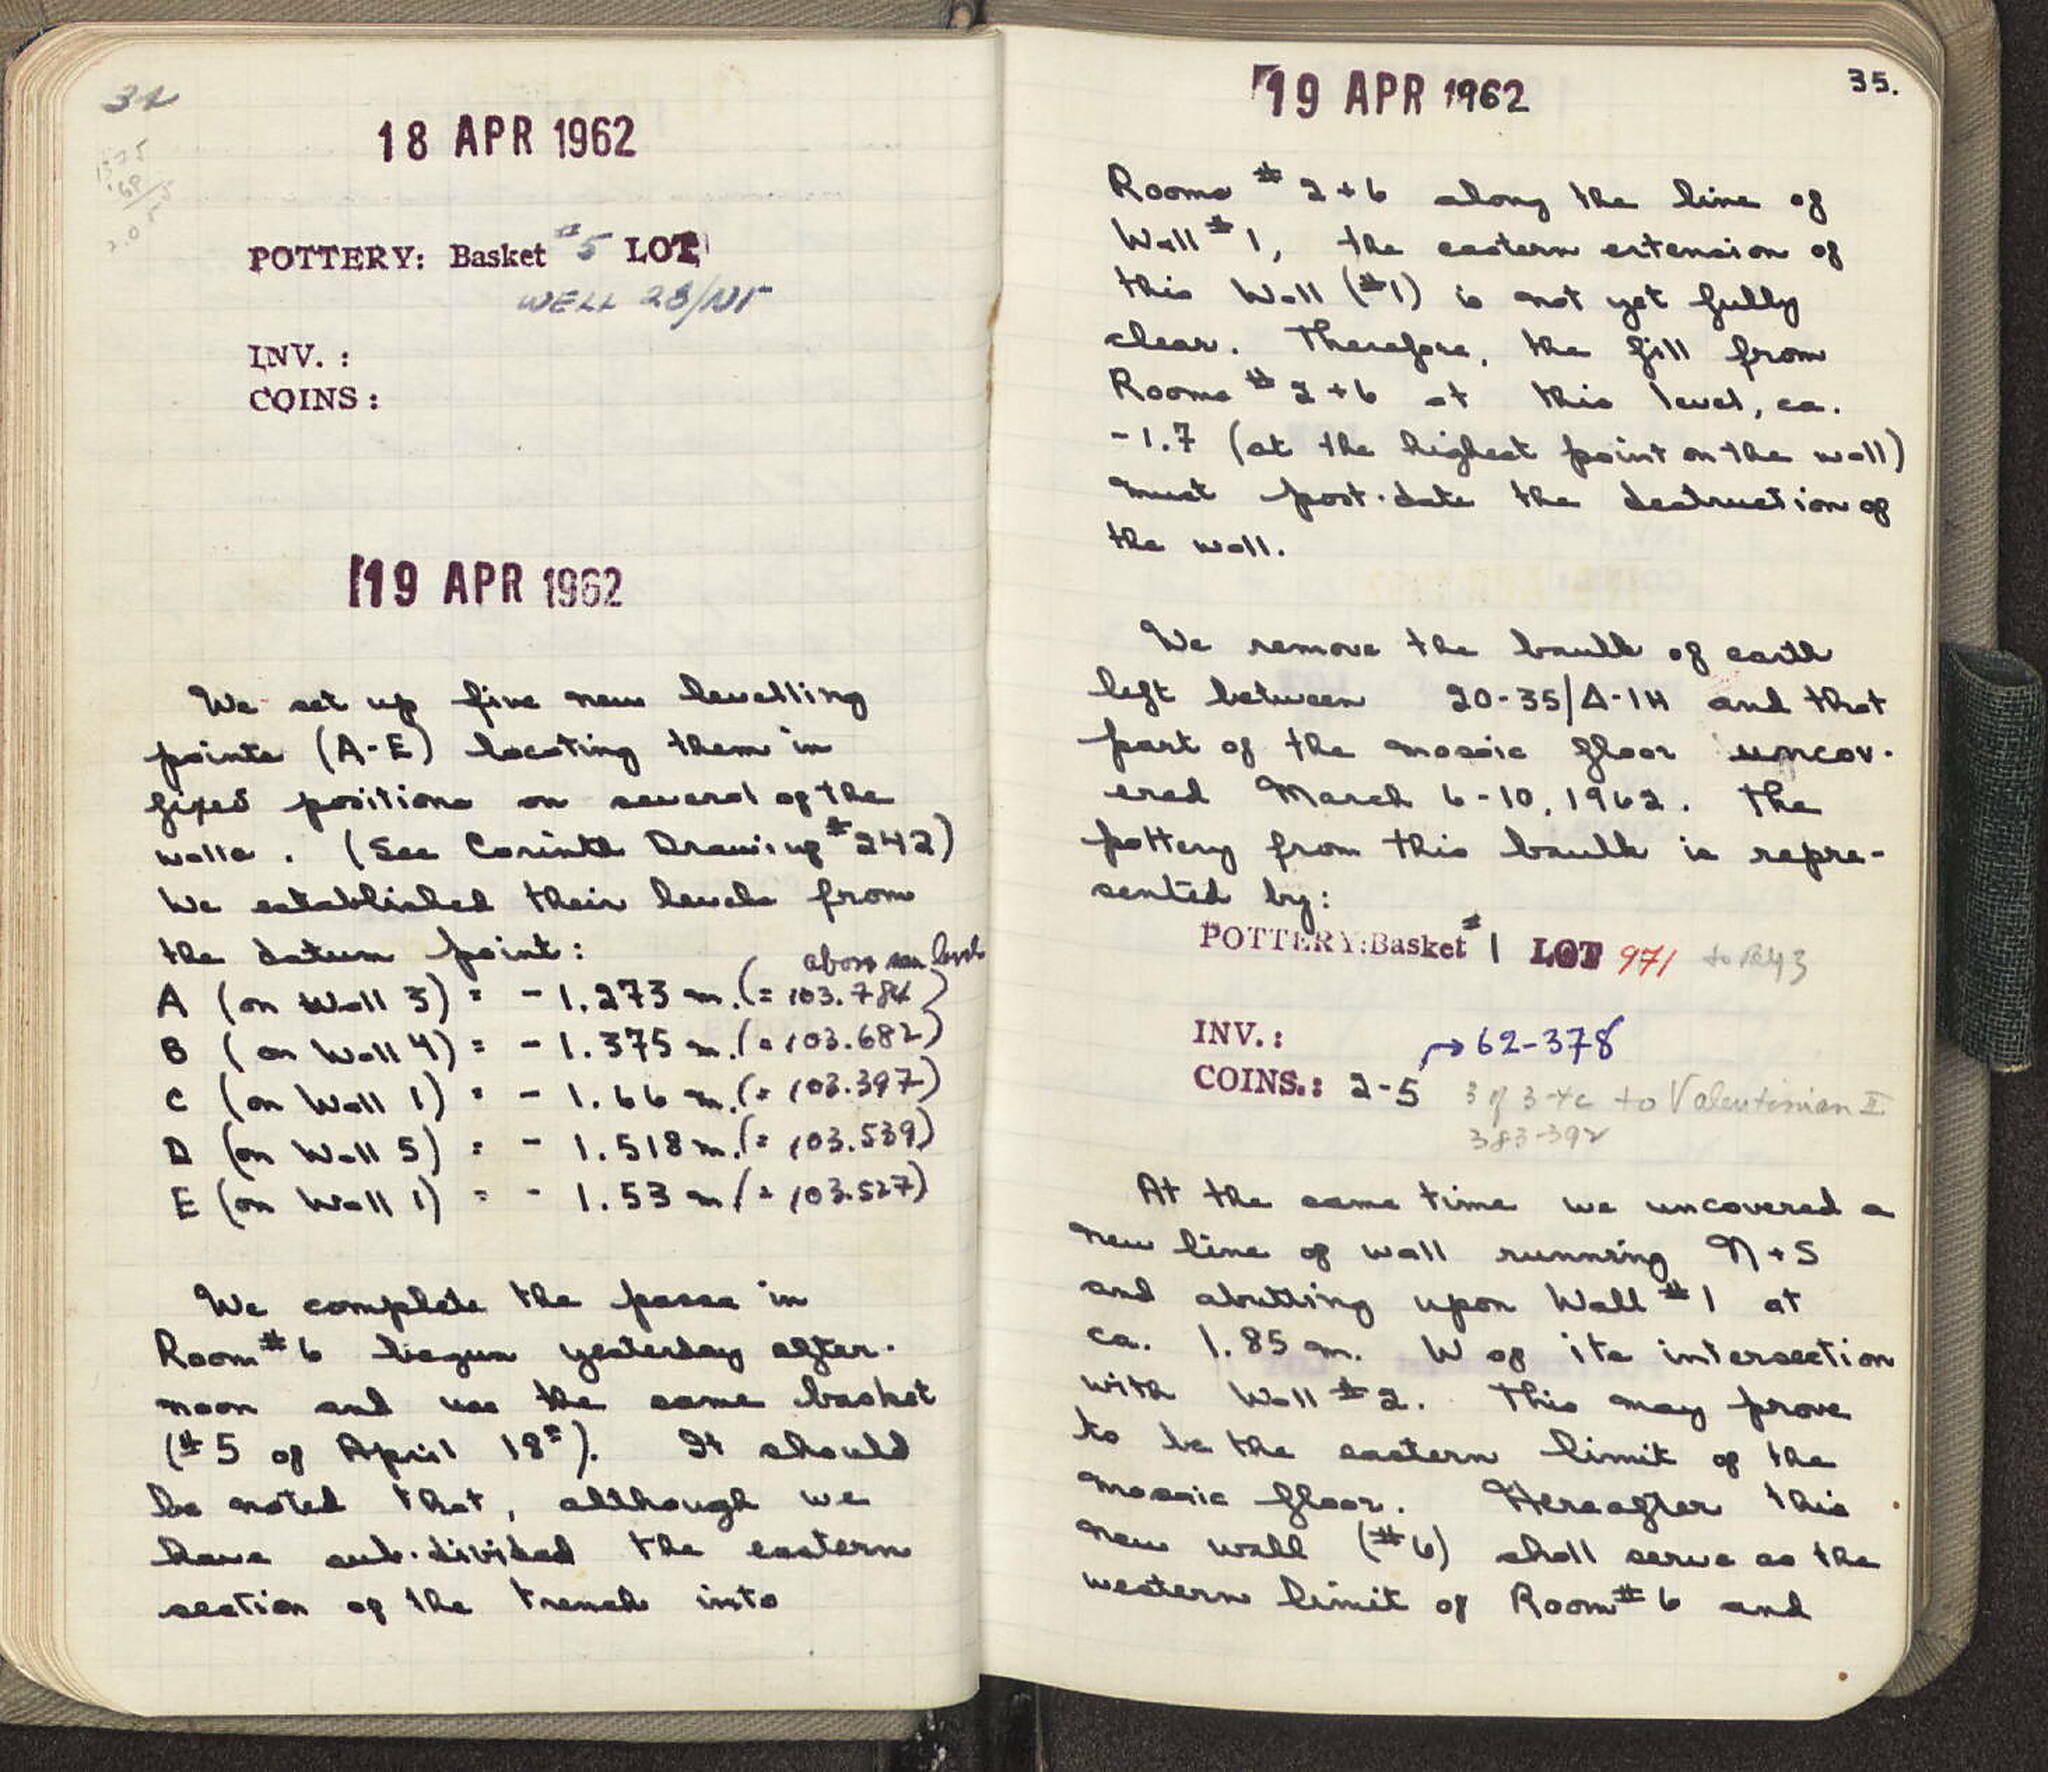 34
18 APR 1962
POTTERY: Basket #5 LOT
WELL 28/NT
INV.:
COINS:
19 APR 1962
We set up five new levelling
points (A-E) locating them in
fixed positions on several of the
walls. (See Corinth Drawing #242)
We established their levels from
the datum point:
above sea level
A (on Wall 3) = - 1.273 m. (= 103.784)
B (on Wall 4) = - 1.375 m. (= 103.682)
C (on Wall 1) = - 1.66 m. (= 103.397)
D (on Wall 5) = - 1.518 m. (= 103.539)
E (on Wall 1) = - 1.53 m (= 103.527)
We complete the passe in
Room #6 begun yesterday after-
noon and use the same basket
(#5 of April 18=). It should
be noted that, although we
have sub-divided the eastern
section of the trench into
35.
19 APR 1962
Rooms #2+6 along the line of
Wall #1, the eastern extension of
this Wall (#1) is not yet fully
clear. Therefore, the fill from
Rooms #2+6 at this level, ca.
-1.7 (at the highest point on the wall)
must post-date the destruction of
the wall.
We remove the baulk of earth
left between 20-35/Δ-IH and that
part of the mosaic floor uncov-
ered March 6-10, 1962. The
pottery from this baulk is repre-
sented by:
POTTERY: Basket #1 LOT 971
INV.:
→ 62-378
COINS.: 2-5 3 of 3-4c to Valentinian II
383-392
At the same time we uncovered a
new line of wall running N+S
and abutting upon Wall #1 at
ca. 1.85 m. W of its intersection
with Wall #2. This may prove
to be the eastern limit of the
mosaic floor. Hereafter this
new wall (#6) shall serve as the
western limit of Room #6 and